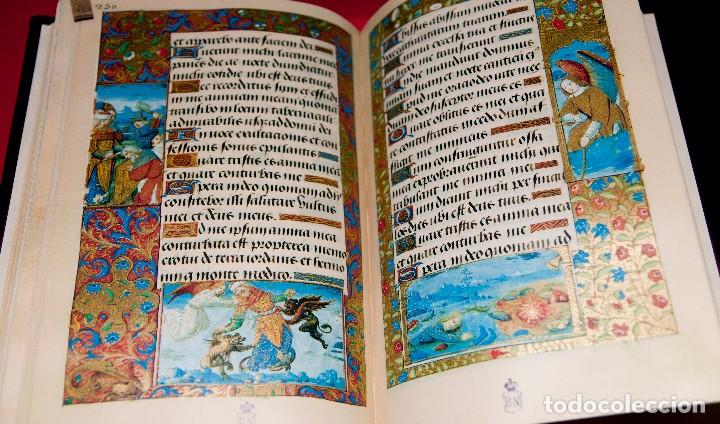 250
et apparebo ante faciem dei
Fuerunt michi lacrime mee
panes die ac nocte dum dicitur
michi cotidie ubi est deus tuus
ec recordatus sum et effudi
in me animam meam quoniam
transibo in locum tabernaculi
admirabilis usque ad domum dei
n voce exultationis et con
fessionis sonus epulantis
uare tristis es anima mea
et quare conturbas me
pera in deo quoniam ad
confitebor illi salutare vultus
mei et deus meus
me ipsum anima mea
conturbata est propterea me
mor ero tui de terra iordanis et hermo
nii a monte modico
byssus abyssum
cataractarum tuarum
mnia excelsa tua et fluctus
tui super me transierunt
n die mandavit dominus
am suam et nocte canticum eius
pud me oratio deo vite mee
dicam deo susceptor meus es
uare oblitus es mei et quare
contristatus incedo dum affli
dum confringuntur ossa
mea exprobraverunt michi qui
tribulant me inimici mei
um dicunt michi per singulos
dies ubi est deus tuus
uare tristis es anima mea
et quare conturbas me
pera in deo quoniam ad
BN
BN
todocoleccion
todocoleccion.net